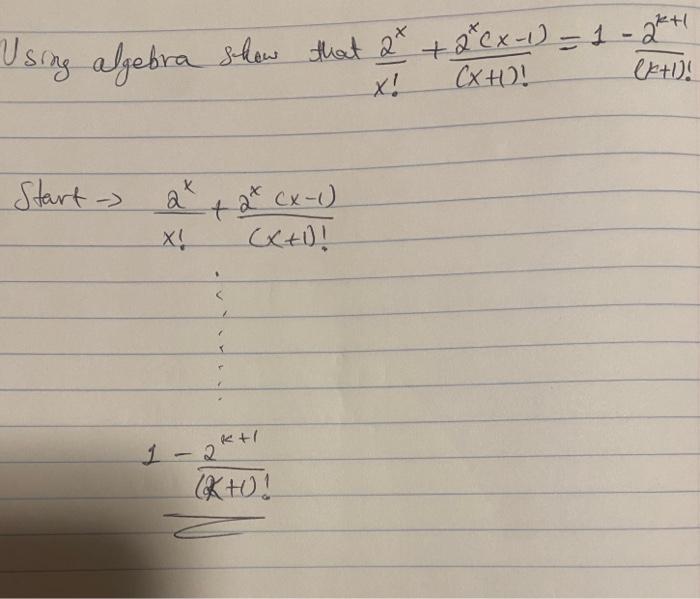 Using algebra show that 2^x/x! + 2^x(x-1)/(x+1)! = 1 - 2^(k+1)/(k+1)!
Start → 2^x/x! + 2^x(x-1)/(x+1)!
1 - 2^(k+1)/(k+1)!